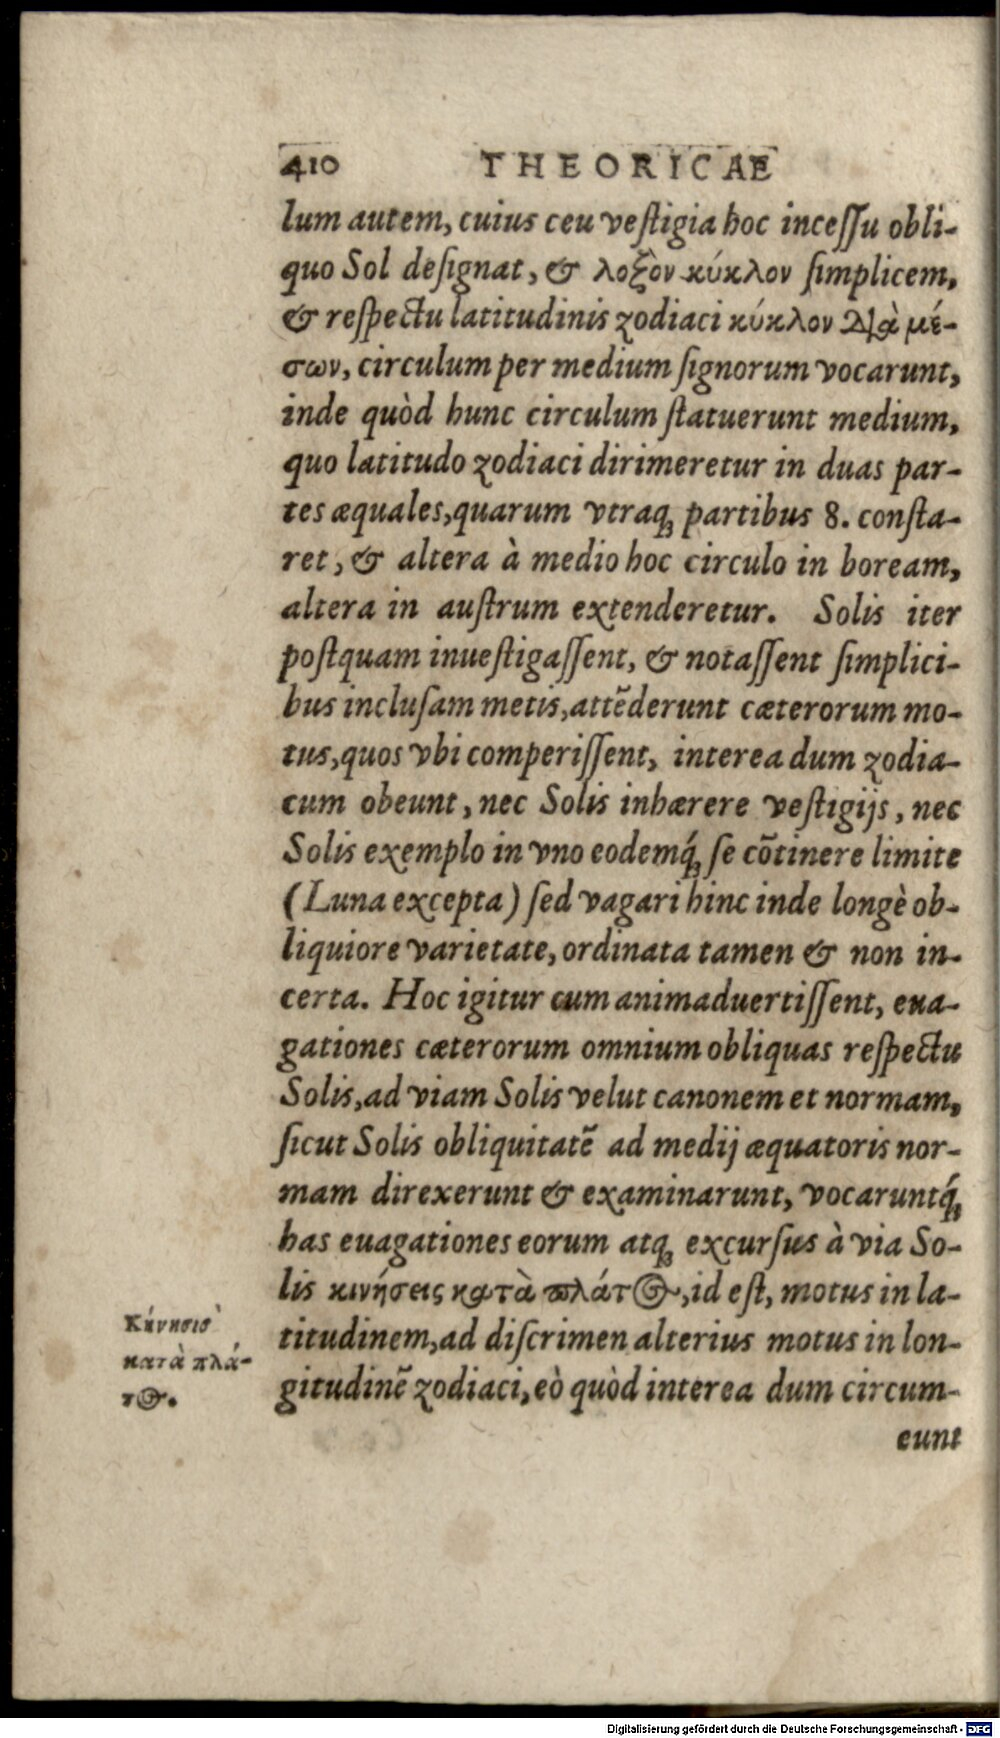 410 THEORICAE
lum autem, cuius ceu veſtigia hoc inceſſu obli-
quo Sol deſignat, & λοξὸν κύκλον ſimplicem,
& reſpectu latitudinis zodiaci κύκλον διὰ μέ-
σων, circulum per medium ſignorum vocarunt,
inde quòd hunc circulum ſtatuerunt medium,
quo latitudo zodiaci dirimeretur in duas par-
tes æquales, quarum vtraqꝫ partibus 8. conſta-
ret, & altera à medio hoc circulo in boream,
altera in auſtrum extenderetur. Solis iter
poſtquam inueſtigaſſent, & notaſſent ſimplici-
bus incluſam metis, attẽderunt cæterorum mo-
tus, quos vbi comperiſſent, interea dum zodia-
cum obeunt, nec Solis inhærere veſtigijs, nec
Solis exemplo in vno eodemqꝫ́ ſe cõtinere limite
(Luna excepta) ſed vagari hinc inde longè ob-
liquiore varietate, ordinata tamen & non in-
certa. Hoc igitur cum animaduertiſſent, eua-
gationes cæterorum omnium obliquas reſpectu
Solis, ad viam Solis velut canonem et normam,
ſicut Solis obliquitatẽ ad medij æquatoris nor-
mam direxerunt & examinarunt, vocaruntqꝫ́
has euagationes eorum atqꝫ excurſus à via So-
lis κινήσεις κατὰ πλάτος, id eſt, motus in la-
titudinem, ad diſcrimen alterius motus in lon-
gitudinẽ zodiaci, eò quòd interea dum circum-
eunt
Κίνησισ
κατὰ πλά-
τος.
Digitalisierung gefördert durch die Deutsche Forschungsgemeinschaft - DFG